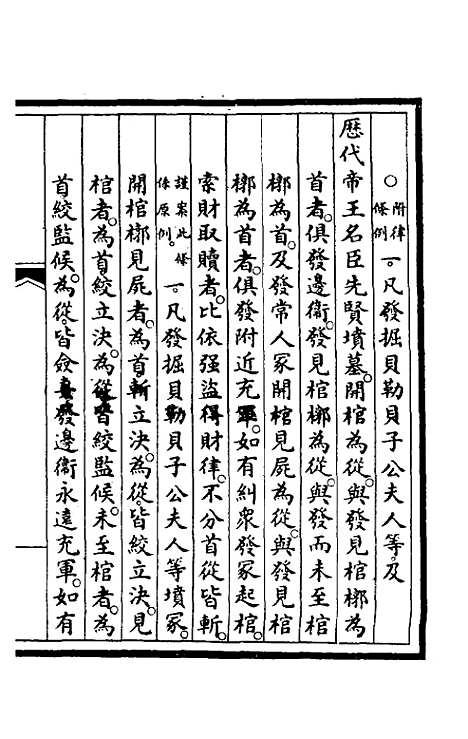 ○附律條例一凡發掘貝勒貝子公夫人等及
歷代帝王名臣先賢墳墓開棺為從與發見棺槨為
首者俱發邊衞發見棺槨為從與發而未至棺
槨為首及發常人冢開棺見屍為從與發見棺
槨為首者俱發附近充軍如有糾衆發冢起棺
索財取贖者比依强盜得財律不分首從皆斬
謹案此條係原例。一凡發掘貝勒貝子公夫人等墳冢
開棺槨見屍者為首斬立決為從皆絞立決見
棺者為首絞立決為從皆絞監候未至棺者為
首絞監候為從皆僉發邊衞永遠充軍如有